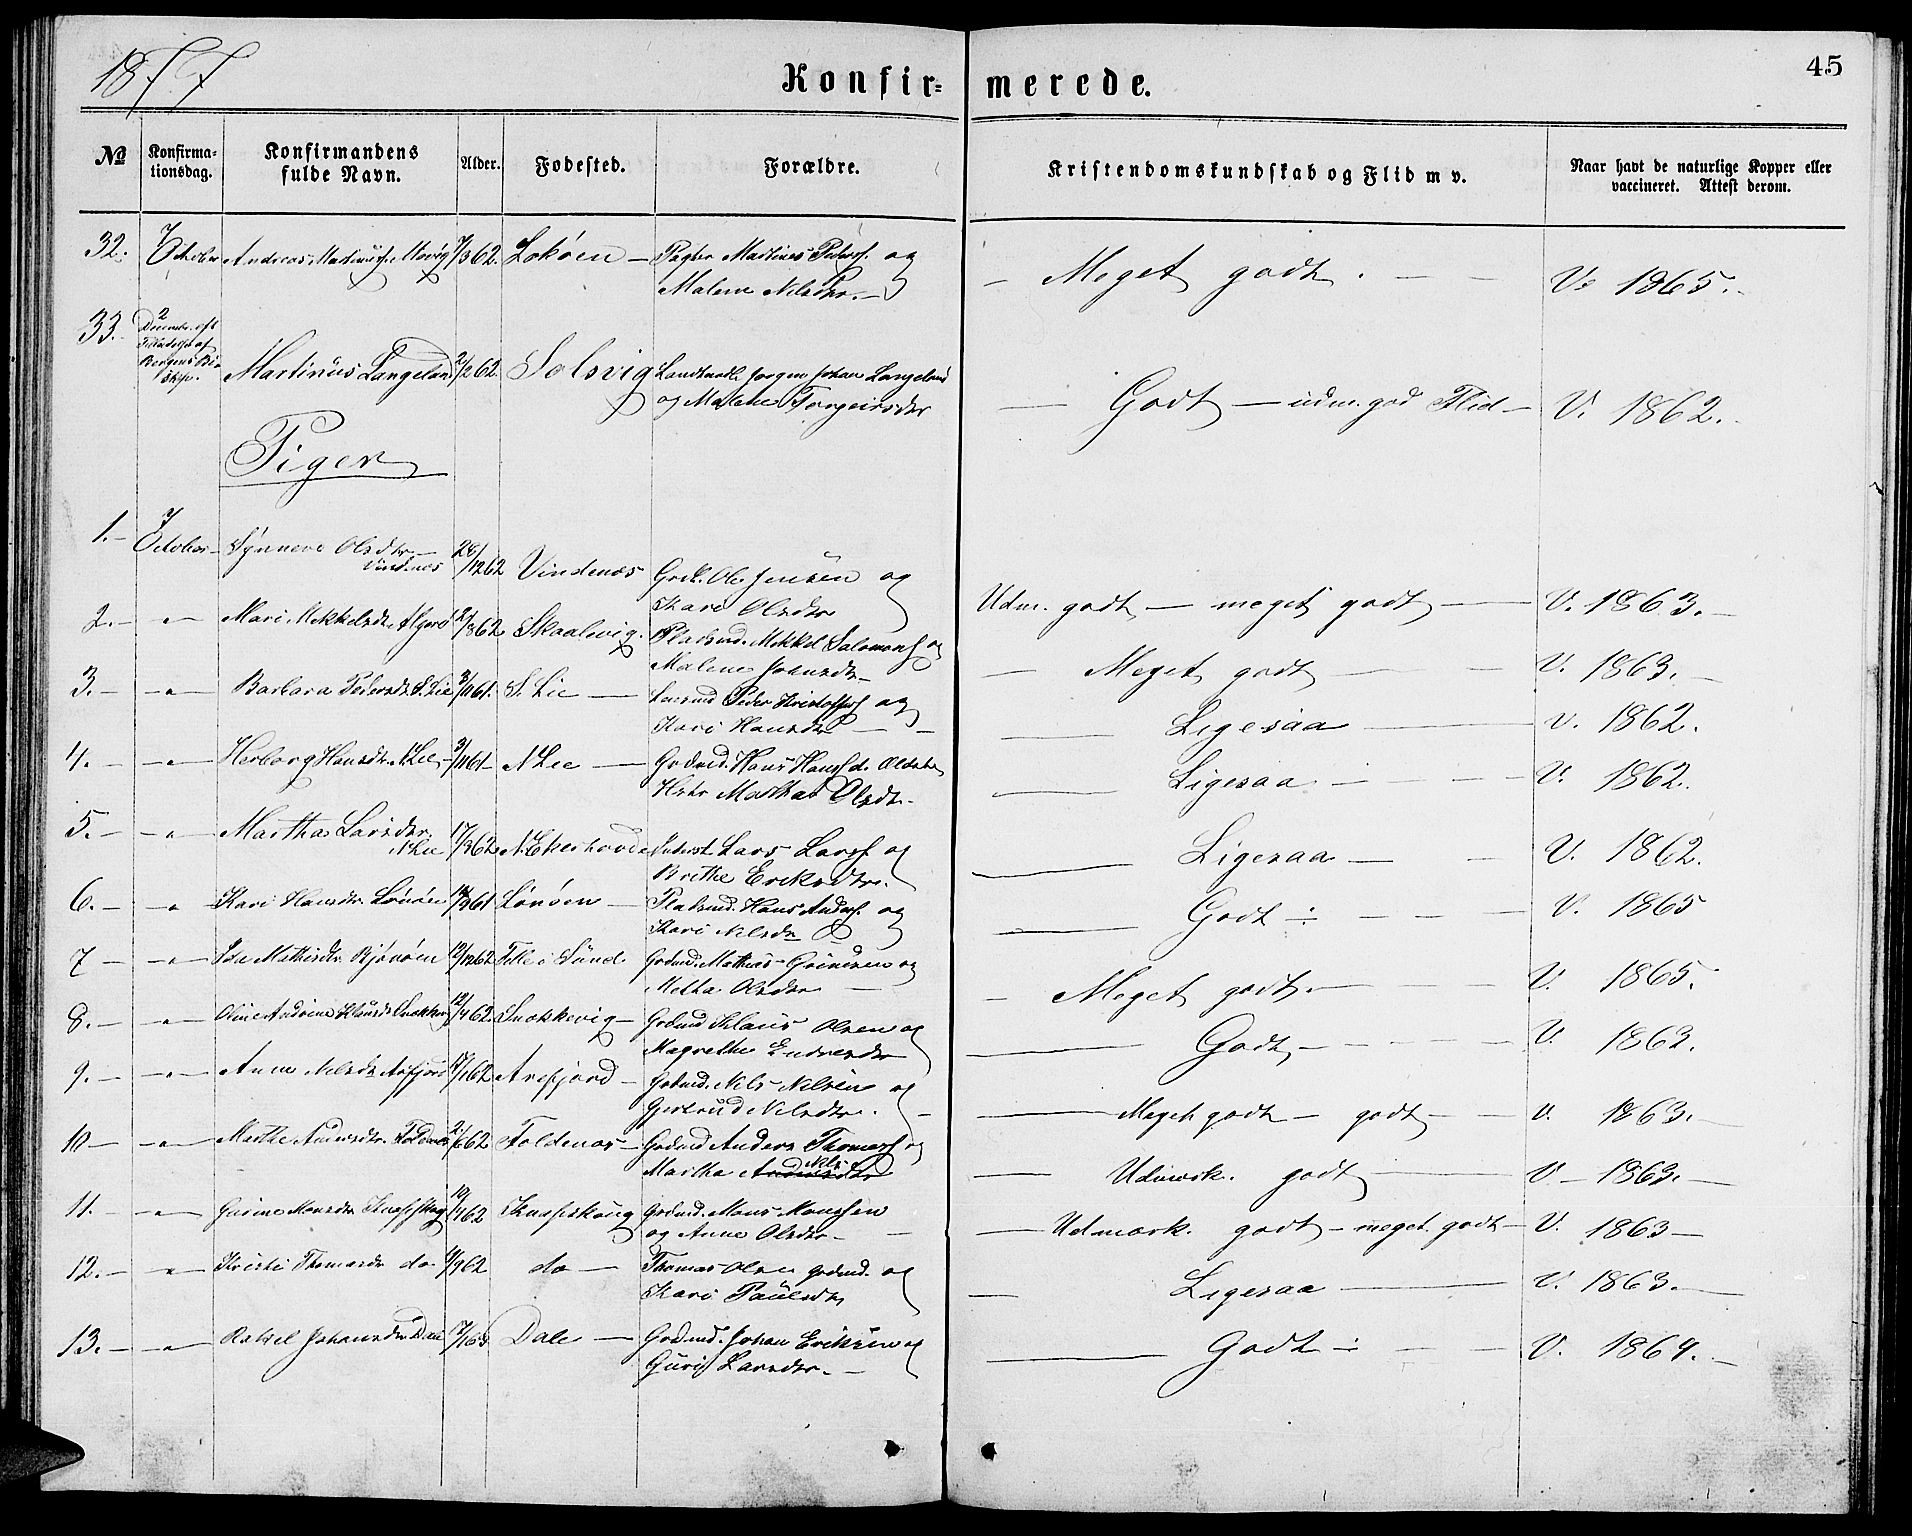 1877
Konfir= merede.
45
No
Konfirma-
tionsdag.
Konfirmandens
fulde Navn.
Alder.
Fodested.
Forældre.
Kristendomskundskab og Flid m v.
Naar havt de naturlige Kopper eller
vaccineret. Attest derom.
32. 7 October Andreas 7/3 62. Lokøen — Martines Peders. og
Malene Nilsdr. —
— Meget godt. — — V. 1865.
33. 2 Decembr. eft
Tilladelse af
Bergens Bi-
skop.
Martinus Langeland 2/2 62. Solsvig Jørgen Johan Langeland
og Malene Torgeirsdr
— Godt — udm. god Flid — V. 1862.
Piger
1. — 7 October — Synneve Olsdtr. —
Vindenes
28/12 62 Vindenes Grdb. Ole Jensen og
Kari Olsdtr
Udm. godt — meget godt — V. 1863. —
2. — " — Mari Mikkelsdtr. 2/8 62 Skaalevig. Pladsmd. Mikkel Salomons. og
Malene Johnsdtr —
— Meget godt — V. 1863. —
3. — — " — Barbara Pedersdtr. S. Lie 3/11 61. S. Lie — Peder Kristoffers. og
Kari Hansdtr — —
— Ligesaa — V. 1862.
4. — — " — Herborg Hansdtr. N. Lie 3/11 61 — N Lie — Grdmd. Hans Hans.
Martha Olsdtr. —
— Ligesaa — V. 1862.
5. — — " — Martha Larsdtr.
N. Lie
17/3 62 N. Ekerhovde Lars Lars. og
Brithe Eriksdtr.
— Ligesaa — V. 1862.
6. — — " — Kari Hansdtr. Lønøen 61 Lønøen — Pladsmd. Hans Anders. og
Kari Nilsdr
— Godt — V. 1865
7 — — " — Mathisdtr. Bjørøen 12/12 62 Tille i Sund. Grdmd. Mathias og
Metha Olsdtr —
— Meget godt. — V. 1865.
8. — — " — Oline Andrine 12/4 62. Snekkevig — Grdmd Klaus Olsen og
Magrethe Endresdtr
— Godt — V. 1863.
9. — — " — Anne Nilsdtr 17/1 62 Arefjord — Grdmd. Nils Nilsen og
Gjertrud Nilsdtr. —
— Meget godt — godt — V. 1863. —
10 — — " — Marthe Andersdtr. Foldnes 2/6 62 Foldenes — Grdmd Anders Thomass. og
Martha Andersdtr Nils
— Udmerk. godt — V — 1863. —
11. — — " — Monsdtr 10/1 62 Knapskoug Grdmd. Mons Monsen
og Anne Olsdtr. — —
— Udmærk. godt — meget godt — V. 1863 —
12. — — " — Kristi Thomasdr do. 4/9 62 do — Thomas Olsen Grdmd. og
Kari Paulsdtr
— Ligesaa — V. 1863. —
13. — — " — Rakel Johansdtr Dale Dale — Grdmd. Johan Eriksen og
Guri Larsdtr. —
— Godt — V. 1864. —